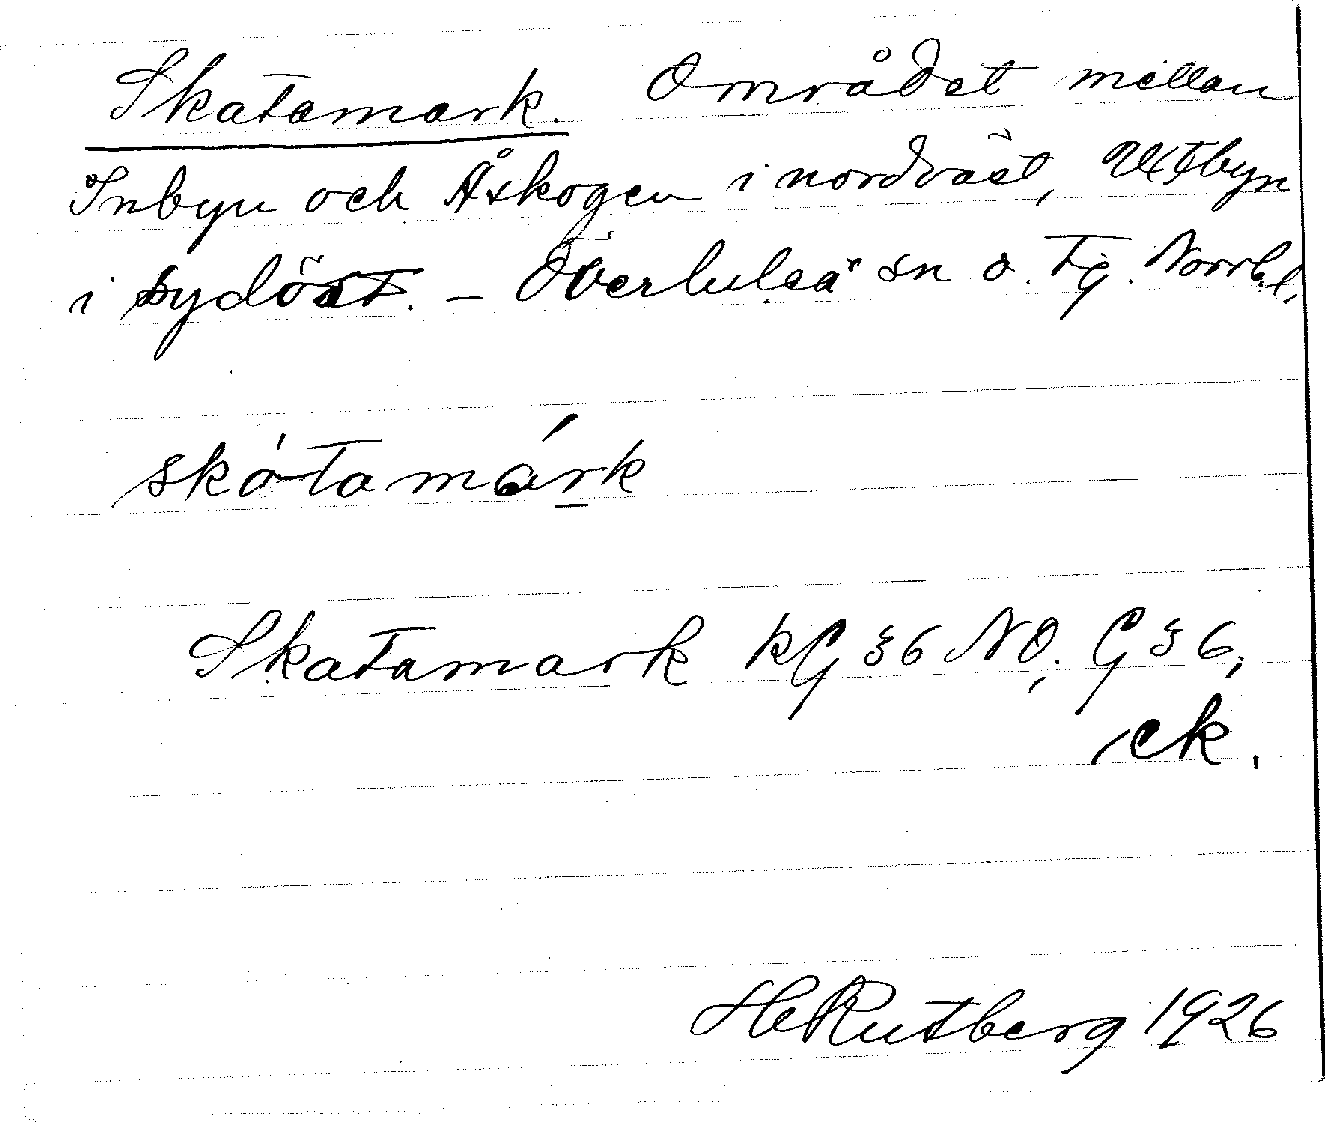 Skatamark. Området mellan
Inbyn och Åskogen i nordväst, Utbyn
i sydöst. – Överluleå sn o. tg. Norrb.l.
skátamárk
Skatamark kG 36 NO, G 36,
ek.
HRutberg 1926